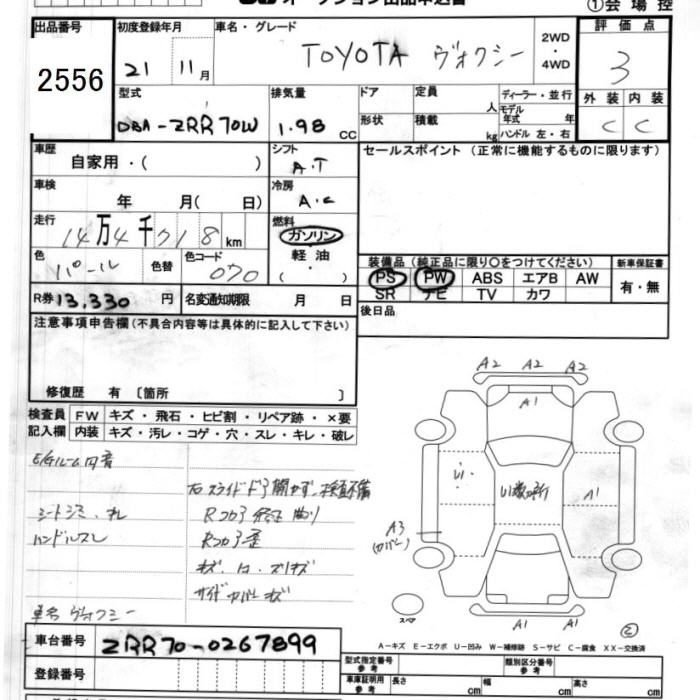 オークション出品申込書
①会場控
出品番号
2556
初度登録年月
21 11月
車名・グレード
TOYOTA ヴォクシー
2WD
・
4WD
評価点
3
外装 内装
C C
型式
DBA-ZRR70W
排気量
1.98 CC
ドア
形状
定員 人
積載 kg
ディーラー・並行
モデル
年式 年
ハンドル 左・右
車歴
自家用・( )
シフト
A.T
車検
年 月( 日)
冷房
A.C
走行
14万4千718km
燃料
ガソリン
軽油
( ・ )
色
パール
色替
色コード
070
R券 13,330 円
名変通知期限 月 日
セールスポイント (正常に機能するものに限ります)
装備品 (純正品に限り○をつけてください)
PS PW ABS エアB AW
SR ナビ TV カワ
新車保証書
有・無
後日品
注意事項申告欄(不具合内容等は具体的に記入して下さい)
修復歴 有 〔箇所 〕
検査員
記入欄
FW キズ・飛石・ヒビ割・リペア跡・×要
内装 キズ・汚レ・コゲ・穴・スレ・キレ・破レ
E/Gルーム内音
右スライドドア開かず、検査不備
シートシミ、
ハンドルスレ
車名 ヴォクシー
A2 A2 A2
A1
A1
A3
(カバー)
A1 A1 A1
スペア
②
A-キズ E-エクボ U-凹み W-補修跡 S-サビ C-腐食 XX-交換済
車台番号
ZRR70-0267899
登録番号
型式指定番号
参考
類別区分番号
参考
車庫証明用
参考
長さ cm
幅 cm
高さ cm